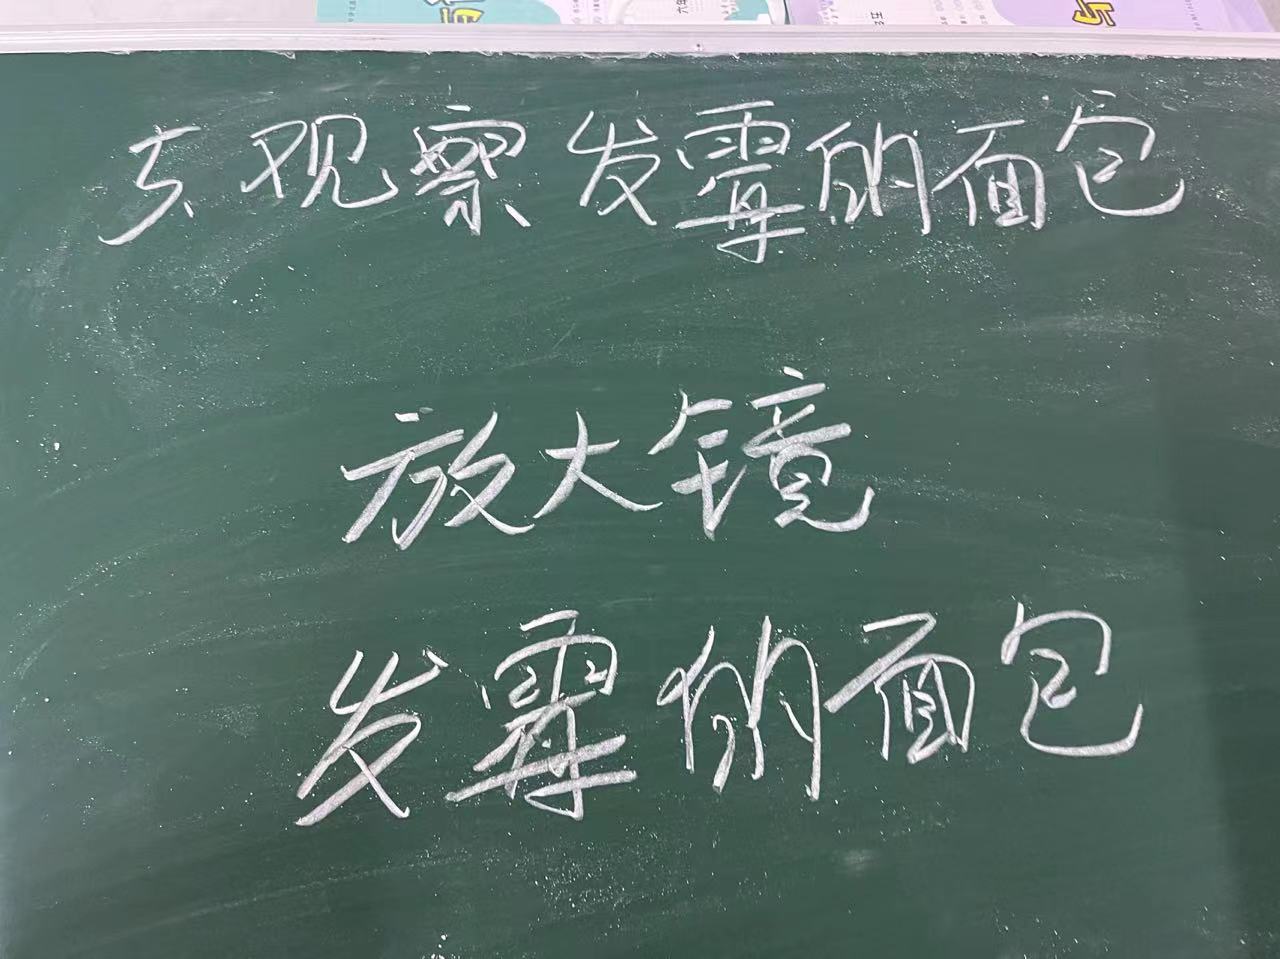 5、观察发霉的面包
放大镜
发霉的面包